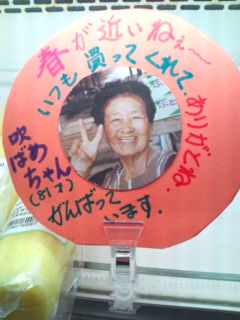 春が近いねぇ〜
いつも買ってくれて、
ありがとね。
吹ばめちゃん
(81才)
がんばって
います.